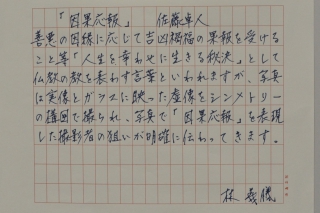 「因果応報」 佐藤卓人
善悪の因縁に応じて吉凶禍福の果報を受ける
こと等「人生を幸わせに生きる秘決」として
仏教の教を表わす言葉といわれますが、写真
は実像とガラスに映った虚像をシンメトリー
の構図で撮られ、写真で「因果応報」を表現
した撮影者の狙いが明確に伝わってきます。
林 義勝